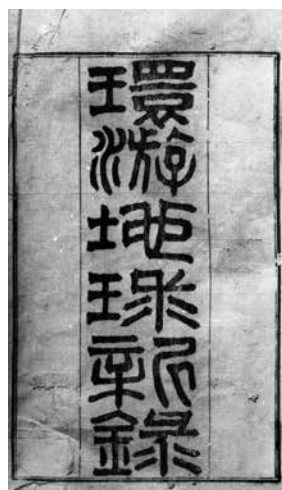 環游地球新錄